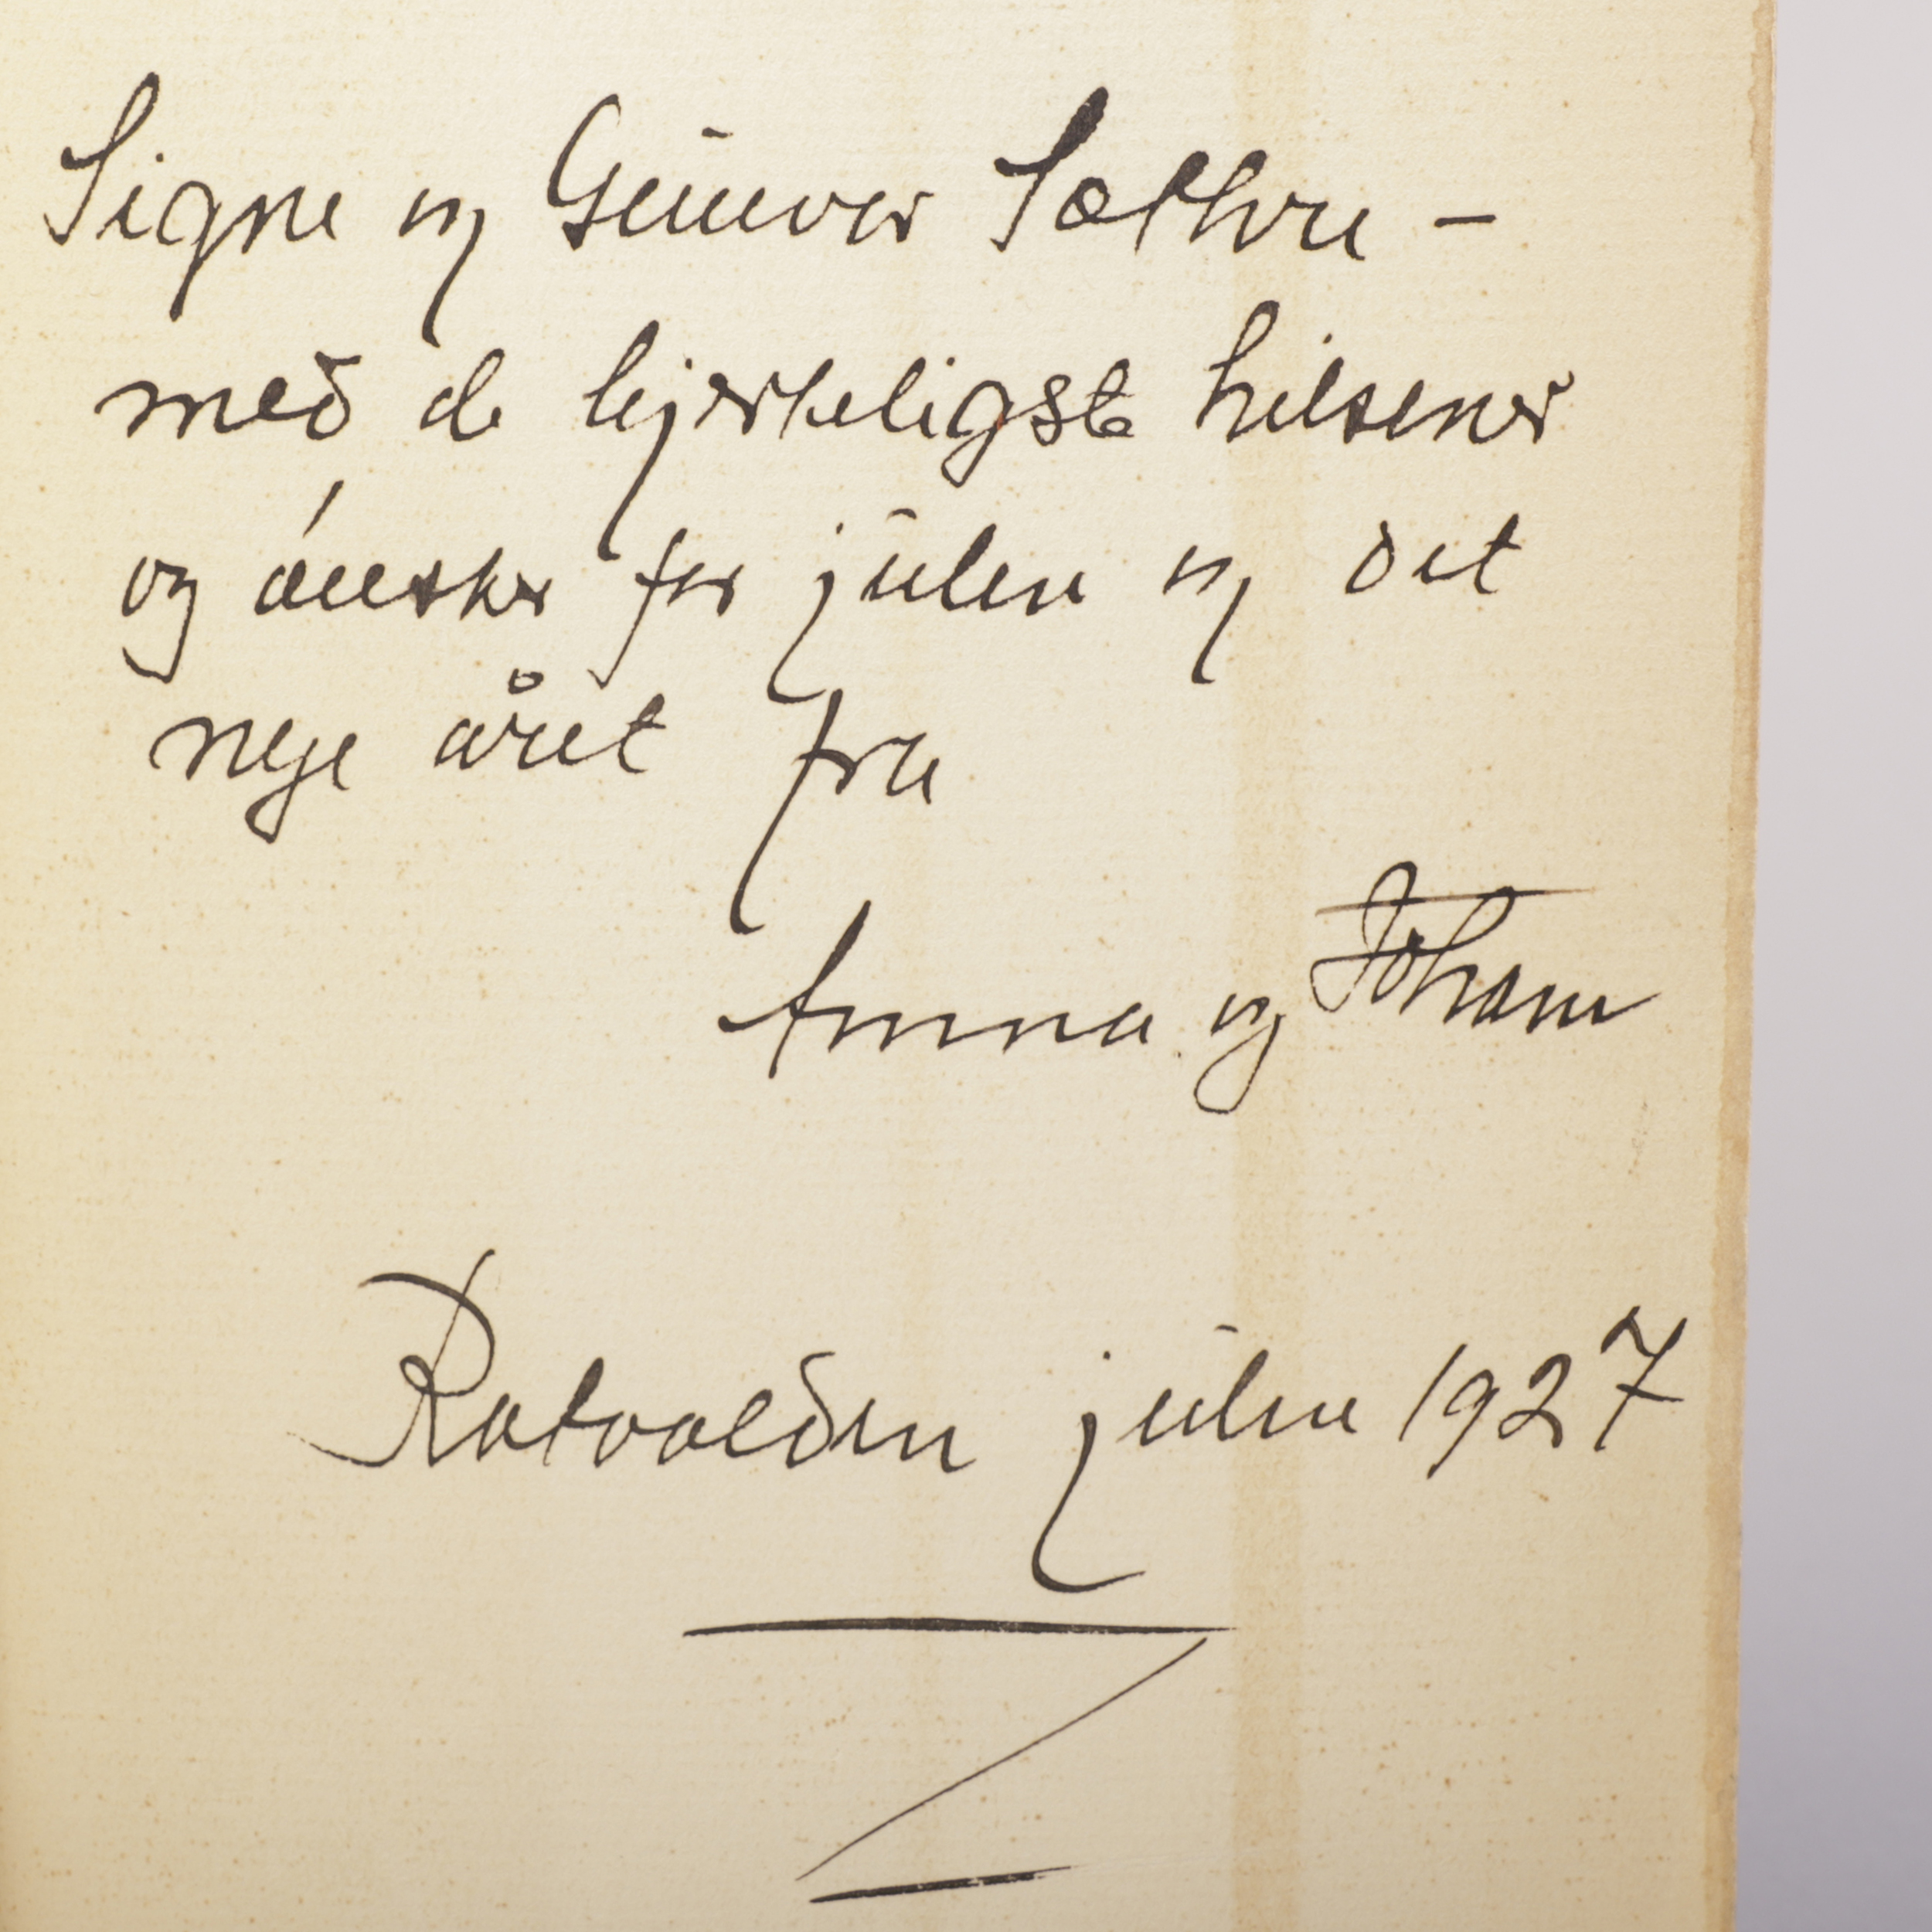 Signe og Gunvor Sæthre –
med de hjerteligste hilsener
og ønsker for julen og det
nye året fra
Anna og Johann
julen 1927